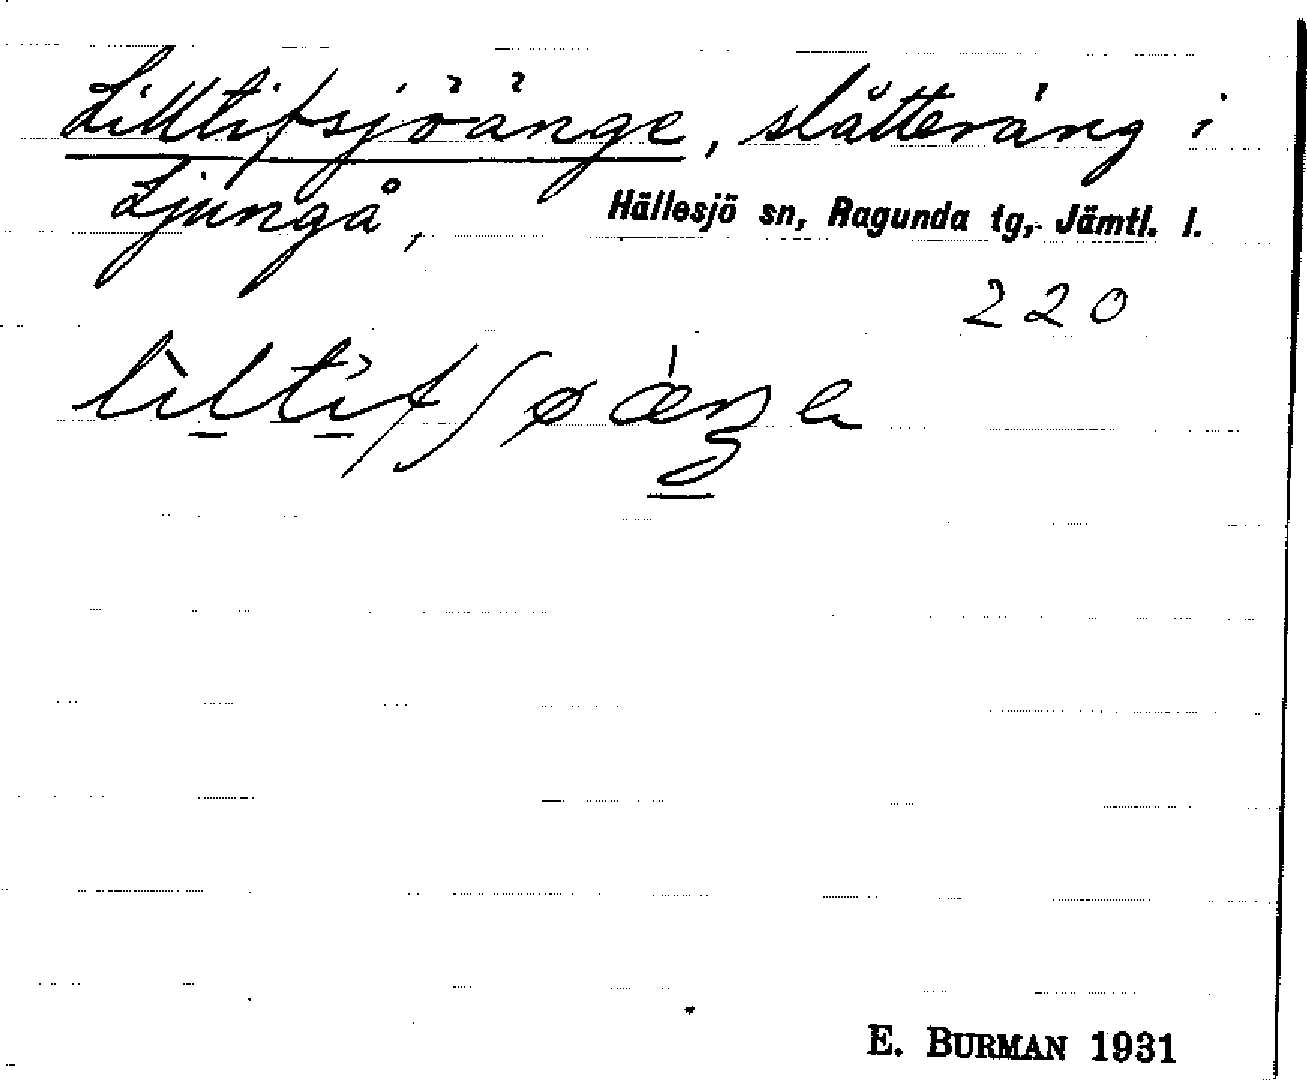 Lilltifsjöänge, slåtteräng i
Ljungå, Hällesjö sn, Ragunda tg, Jämtl. l.
220
E. BURMAN 1931